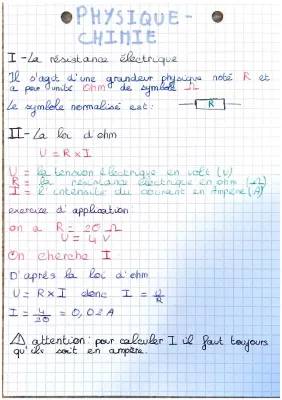 PHYSIQUE-
CHIMIE
I - La résistance électrique
Il s'agit d'une grandeur physique noté R et
a pour unité Ohm de symbole Ω
Le symbole normalisé est :
R
II - La loi d'ohm
U = R x I
U = la tension électrique en volt (v)
R = la résistance électrique en ohm (Ω)
I = l'intensité du courant en Ampère (A)
exercice d'application
on a R = 20 Ω
U = 4 V
On cherche I
D'après la loi d'ohm
U = R x I donc I = U/R
I = 4/20 = 0,02A
⚠ attention : pour calculer I il faut toujours
qu'il soit en ampère.